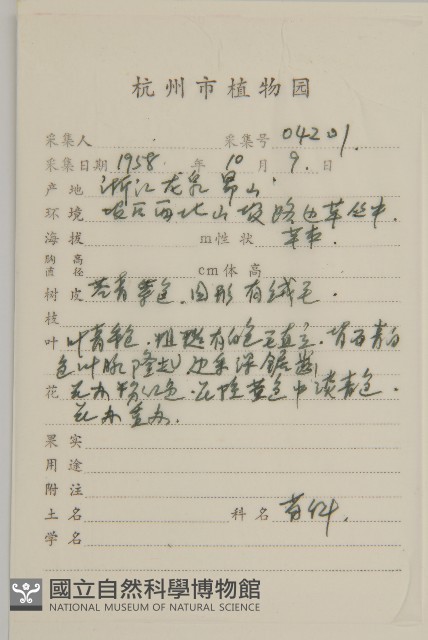 杭州市植物园
采集人 采集号 04201
采集日期 1958 年 10 月 9. 日
产地 浙江龙泉昴山
环境 西北山坡路边草丛中.
海拔 m性状 草本.
胸高直径 cm体高
树皮 色. 圆形有绒毛.
枝
叶 叶青色. 粗糙有白色毛直立. 背面青白
色叶脉隆起边系深锯齿
花 花办粉红色. 花 黄色中 青色.
花办 办.
果实
用途
附注
土名 科名 菊科.
学名
國立自然科學博物館
NATIONAL MUSEUM OF NATURAL SCIENCE